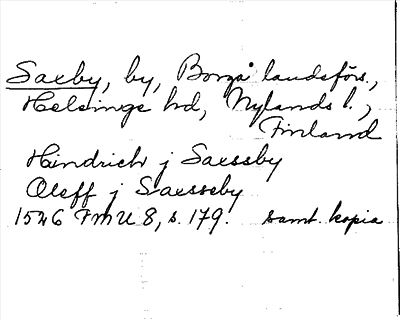 Saxby, by, Borgå landsförs.,
Helsinge hd, Nylands l.,
Finland
Hindrich j Saxssby
Oleff j Saxsseby
1546 FMU 8, s. 179. samt. kopia